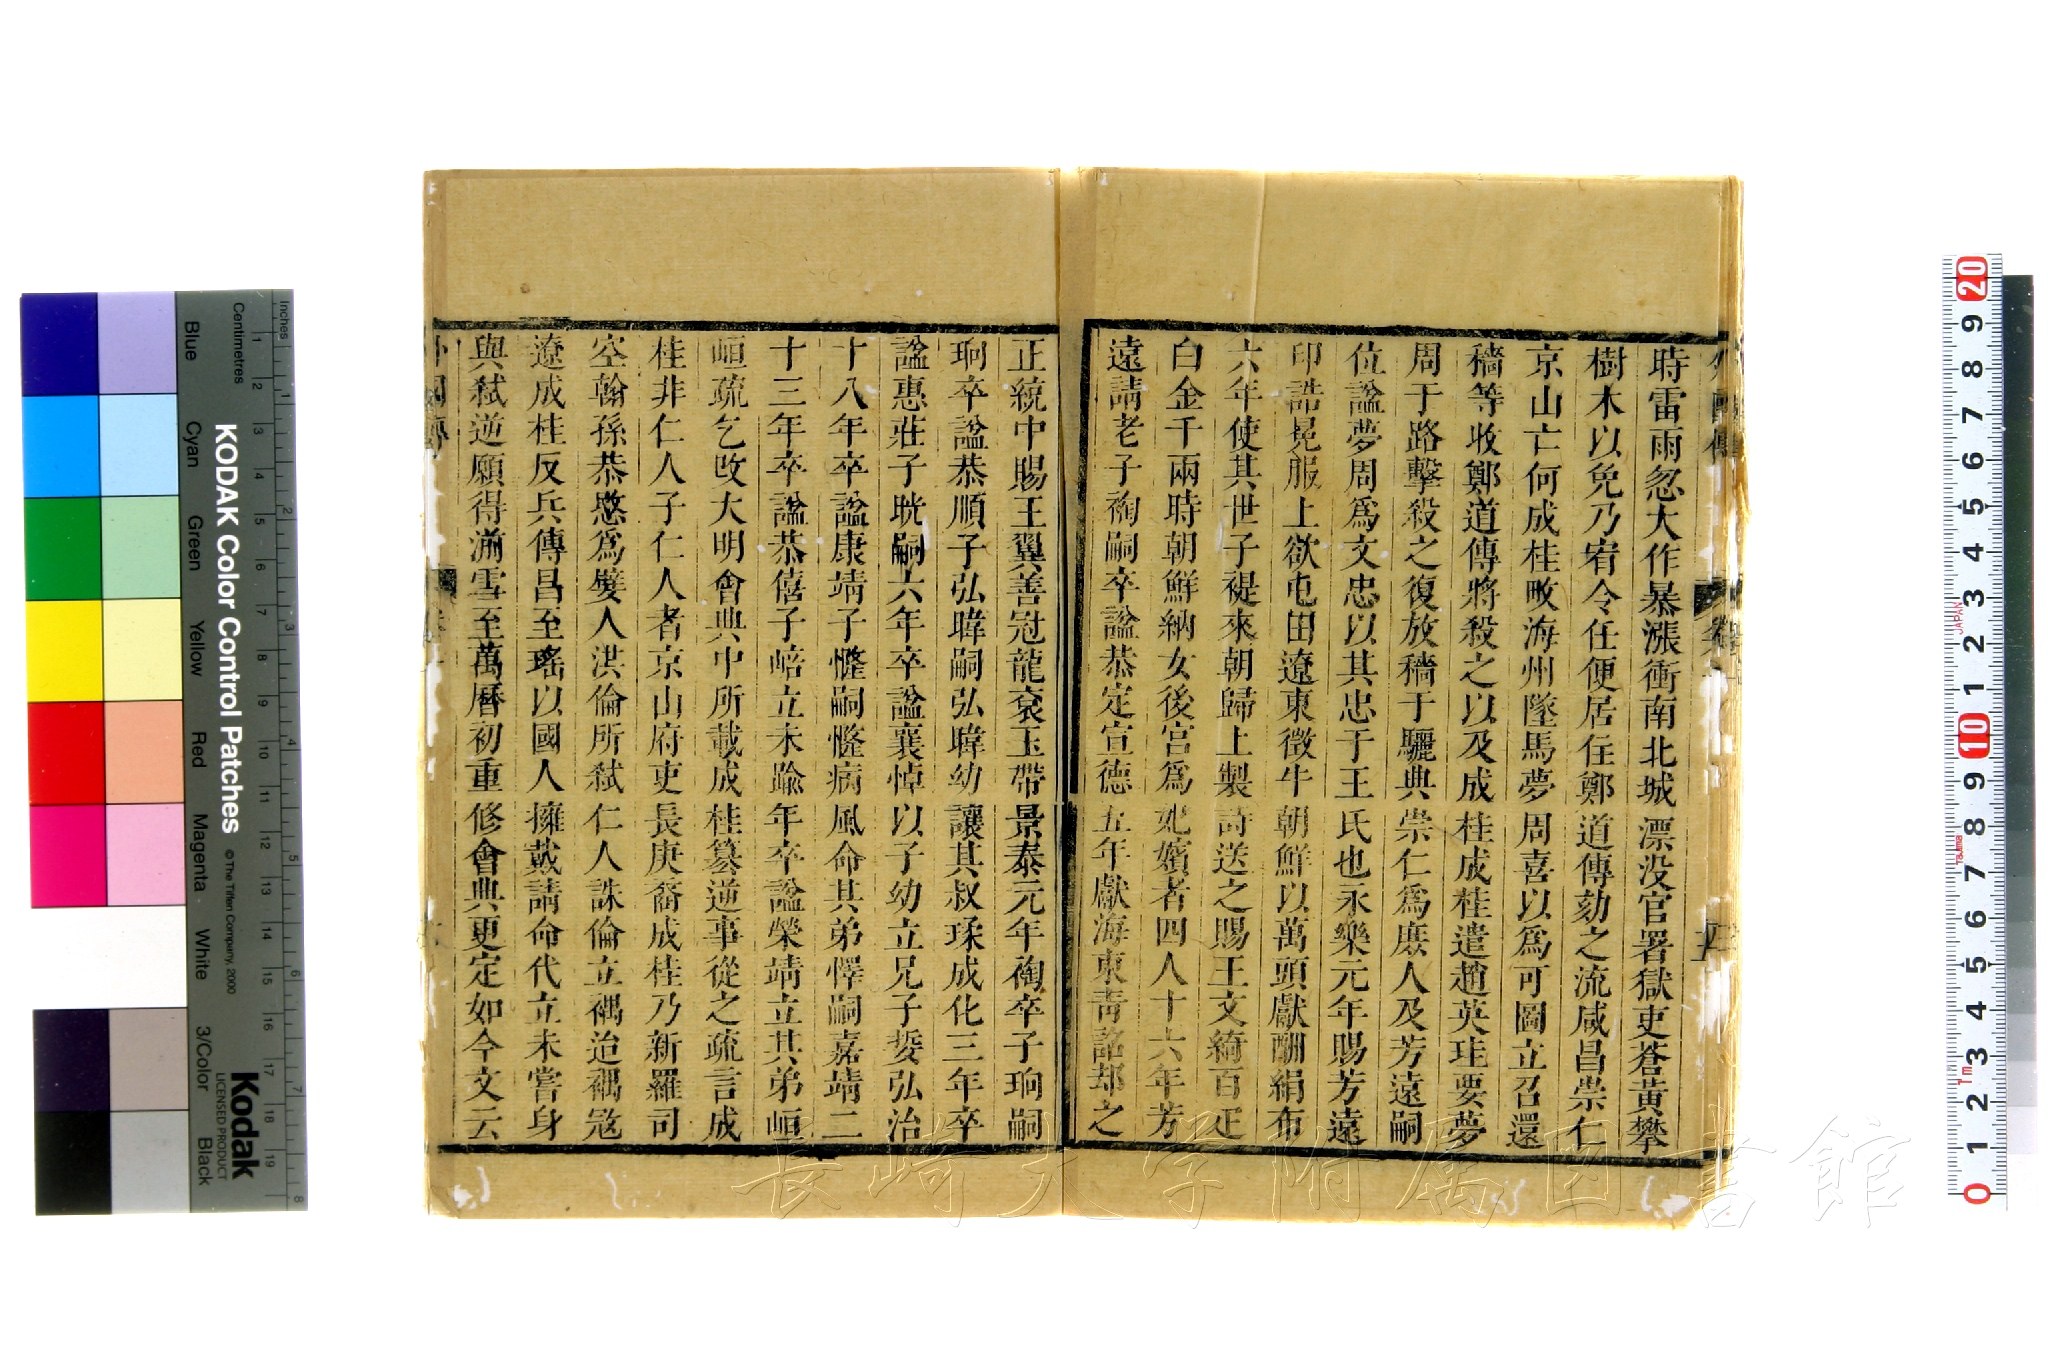 時雷雨忽大作暴漲衝南北城漂没官署獄吏蒼黃攀
樹木以免乃宥令任便居住鄭道傳劾之流咸昌崇仁
京山亡何成桂畋海州墜馬夢周喜以爲可圖立召還
穡等收鄭道傳將殺之以及成桂成桂遣趙英珪要夢
周于路擊殺之復放穡于驪典崇仁爲庶人及芳遠嗣
位謚夢周爲文忠以其忠于王氏也永樂元年賜芳遠
印誥冕服上欲屯田遼東徵牛朝鮮以萬頭獻酬絹布
六年使其世子禔來朝歸上製詩送之賜王文綺百疋
白金千兩時朝鮮納女後宮爲妃嬪者四人十六年芳
遠請老子裪嗣卒謚恭定宣德五年獻海東靑詔却之
正統中賜王翼善冠龍袞玉帶景泰元年裪卒子珦嗣
珦卒謚恭順子弘暐嗣弘暐幼讓其叔瑈成化三年卒
謚惠莊子晄嗣六年卒謚襄悼以子幼立兄子娎弘治
十八年卒謚康靖子㦕嗣㦕病風命其弟懌嗣嘉靖二
十三年卒謚恭僖子峼立未踰年卒謚榮靖立其弟峘
峘疏乞改大明會典中所載成桂簒逆事從之疏言成
桂非仁人子仁人者京山府吏長庚裔成桂乃新羅司
空翰孫恭愍爲嬖人洪倫所弑仁人誅倫立禑迨禑寇
遼成桂反兵傳昌至瑤以國人擁戴請命代立未嘗身
與弑逆願得湔雪至萬曆初重修會典更定如今文云
外國傳
長崎大学附属図書館
KODAK Color Control Patches
© The Tiffen Company, 2000
Kodak
LICENSED PRODUCT
Inches
Centimetres
Blue
Cyan
Green
Yellow
Red
Magenta
White
3/Color
Black
1 2 3 4 5 6 7 8 9 10 11 12 13 14 15 16 17 18 19
1 2 3 4 5 6 7 8
20 9 8 7 6 5 4 3 2 1 10 9 8 7 6 5 4 3 2 1 0
JAPAN
Tajima
1m